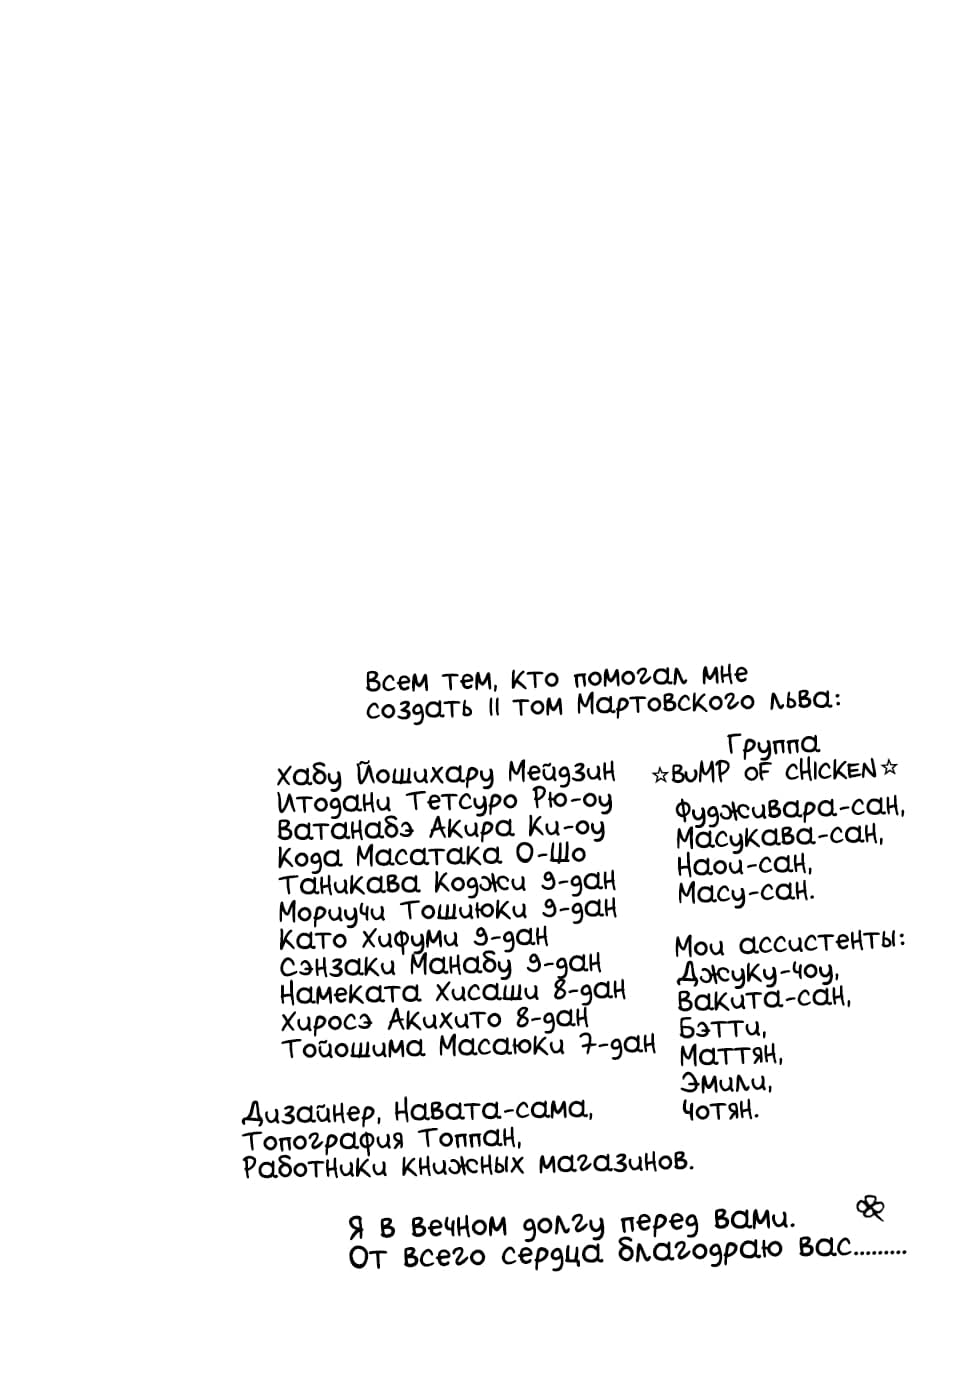 Всем тем, кто помогал мне
создать 11 том Мартовского льва:
Хабу Йошихару Мейдзин
Итодани Тетсуро Рю-оу
Ватанабэ Акира Ки-оу
Кода Масатака О-Шо
Таникава Коджи 9-дан
Мориучи Тошиюки 9-дан
Като Хифуми 9-дан
Сэнзаки Манабу 9-дан
Намеката Хисаши 8-дан
Хиросэ Акихито 8-дан
Тойошима Масаюки 7-дан
Группа
☆BUMP OF CHICKEN☆
Фудживара-сан,
Масукава-сан,
Наои-сан,
Масу-сан.
Мои ассистенты:
Джуку-чоу,
Вакита-сан,
Бэтти,
Маттян,
Эмили,
Чотян.
Дизайнер, Навата-сама,
Топография Топпан,
Работники книжных магазинов.
Я в вечном долгу перед вами.
От всего сердца благодраю вас.........